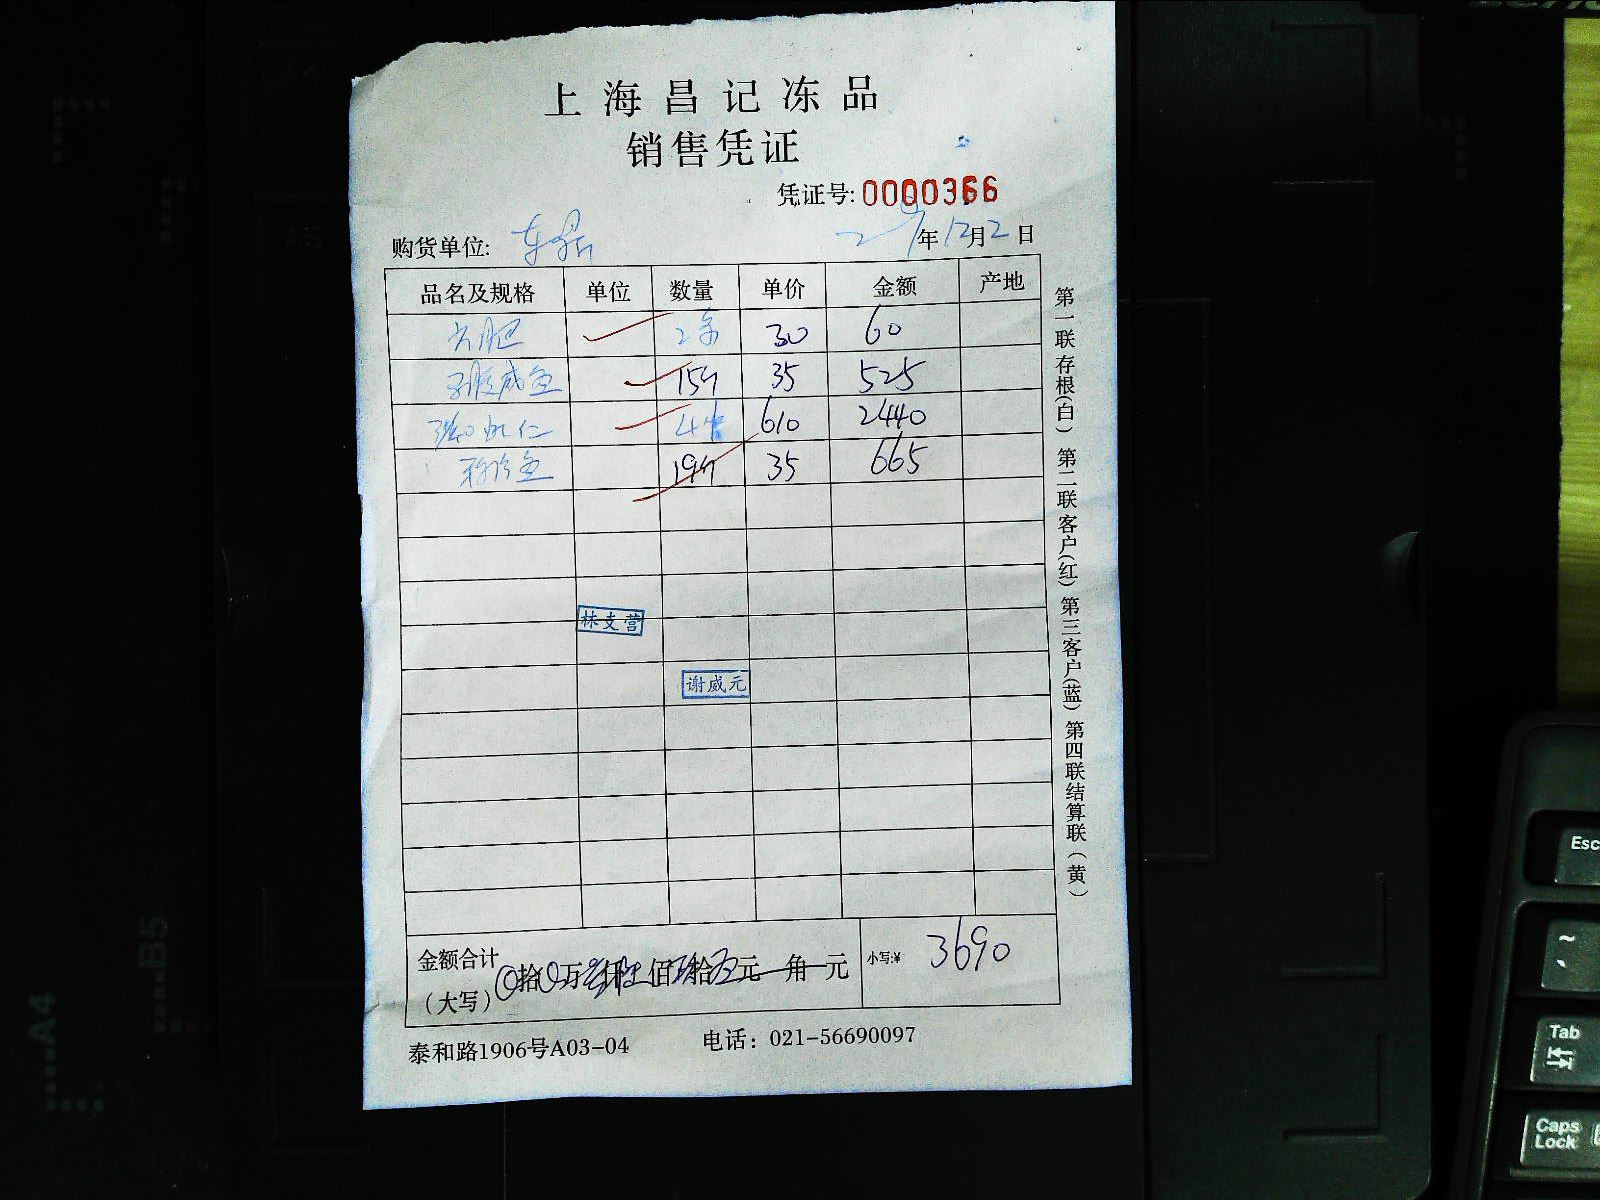 上海昌记冻品
销售凭证
凭证号:0000366
购货单位:
年12月2日
品名及规格 单位 数量 单价 金额 产地
大肥 2条 30 60
15斤 35 525
虾仁 4件 610 2440
鱼 19斤 35 665
林支营
谢威元
金额合计(大写) 拾 万 仟 佰 拾 元 角 元 小写:¥ 3690
泰和路1906号A03-04 电话：021-56690097
第一联存根(白) 第二联客户(红) 第三客户(蓝) 第四联结算联(黄)
A4
B5
Esc
~
Tab
Caps Lock